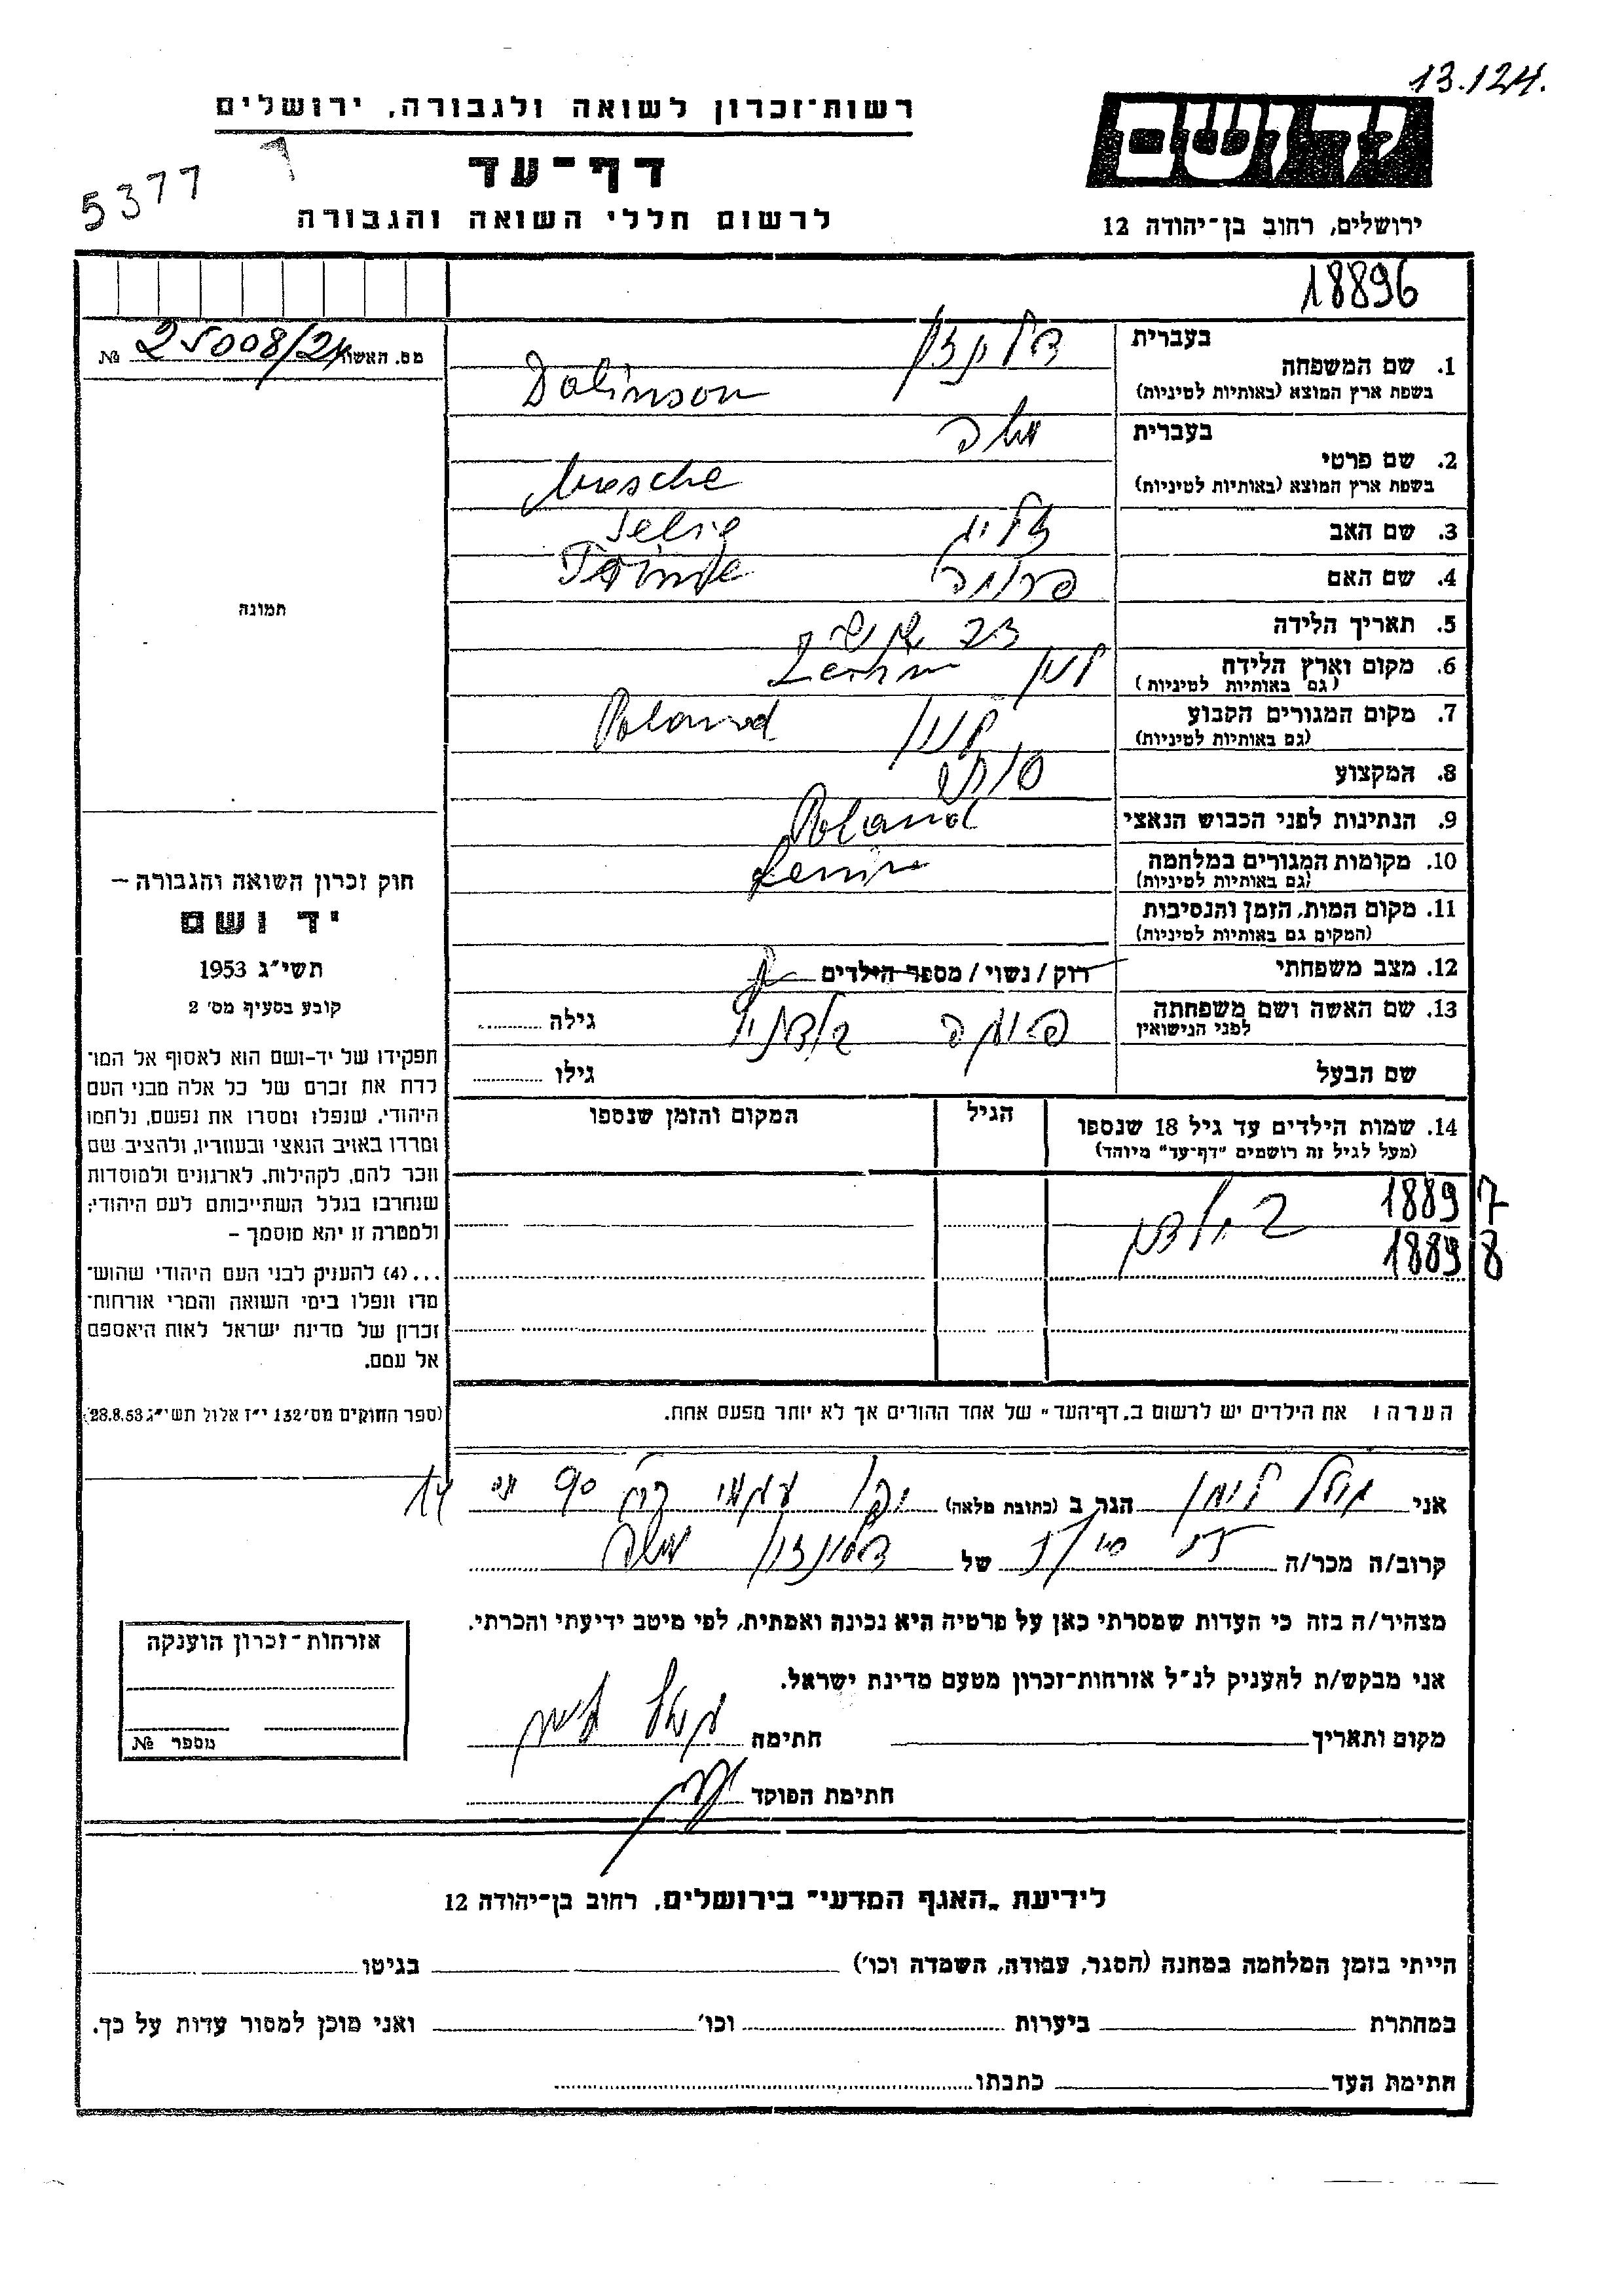 13.124.
ידושם
רשות־זכרון לשואה ולגבורה, ירושלים
דף־עד
5377
לרשום חללי השואה והגבורה
ירושלים, רחוב בן־יהודה 12
18896
מס. האשור 25008/24 №
בעברית דלינזון
1. שם המשפחה
בשפת ארץ המוצא (באותיות לטיניות) Dalinson
בעברית משה
2. שם פרטי
בשפת ארץ המוצא (באותיות לטיניות) Mesche
3. שם האב זליג Selig
4. שם האם פרומה
5. תאריך הלידה 23
6. מקום וארץ הלידה לנין Lenin
(גם באותיות לטיניות)
7. מקום המגורים הקבוע לנין Poland
(גם באותיות לטיניות)
8. המקצוע סוחר
9. הנתינות לפני הכבוש הנאצי Poland
10. מקומות המגורים במלחמה Lenin
(גם באותיות לטיניות)
11. מקום המות, הזמן והנסיבות
(המקום גם באותיות לטיניות)
12. מצב משפחתי רוק / נשוי / מספר הילדים
13. שם האשה ושם משפחתה גילה
לפני הנישואין
שם הבעל גילו
14. שמות הילדים עד גיל 18 שנספו הגיל המקום והזמן שנספו
(מעל לגיל זה רושמים "דף־עד" מיוחד)
18897
2 ילדים
18898
תמונה
חוק זכרון השואה והגבורה –
יד ושם
תשי"ג 1953
קובע בסעיף מס' 2
תפקידו של יד-ושם הוא לאסוף אל המו־
לדת את זכרם של כל אלה מבני העם
היהודי, שנפלו ומסרו את נפשם, נלחמו
ומרדו באויב הנאצי ובעוזריו, ולהציב שם
וזכר להם, לקהילות, לארגונים ולמוסדות
שנחרבו בגלל השתייכותם לעם היהודי;
ולמטרה זו יהא מוסמך –
...(4) להעניק לבני העם היהודי שהוש־
מדו ונפלו בימי השואה והמרי אזרחות־
זכרון של מדינת ישראל לאות היאספם
אל עמם.
(ספר החוקים מס' 132 י"ז אלול תשי"ג 28.8.53)
הערה: את הילדים יש לרשום ב"דף־העד" של אחד ההורים אך לא יותר מפעם אחת.
אני הגר ב (כתובת מלאה) 90 14
קרוב/ה מכר/ה של דלינזון משה
מצהיר/ה בזה כי העדות שמסרתי כאן על פרטיה היא נכונה ואמתית, לפי מיטב ידיעתי והכרתי.
אני מבקש/ת להעניק לנ"ל אזרחות־זכרון מטעם מדינת ישראל.
מקום ותאריך חתימה
חתימת הפוקד
אזרחות־זכרון הוענקה
מספר №
לידיעת "האגף המדעי" בירושלים, רחוב בן־יהודה 12
הייתי בזמן המלחמה במחנה (הסגר, עבודה, השמדה וכו') בגיטו
במחתרת ביערות וכו' ואני מוכן למסור עדות על כך.
חתימת העד כתבתו